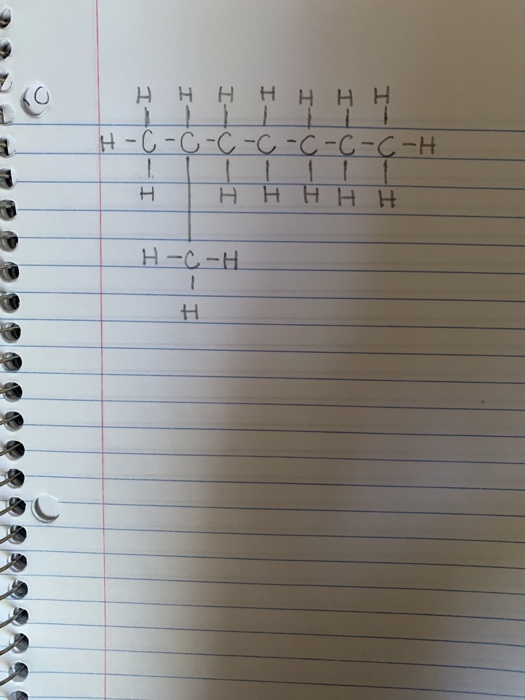 H H H H H H H
H-C-C-C-C-C-C-C-H
H H H H H H
H-C-H
H